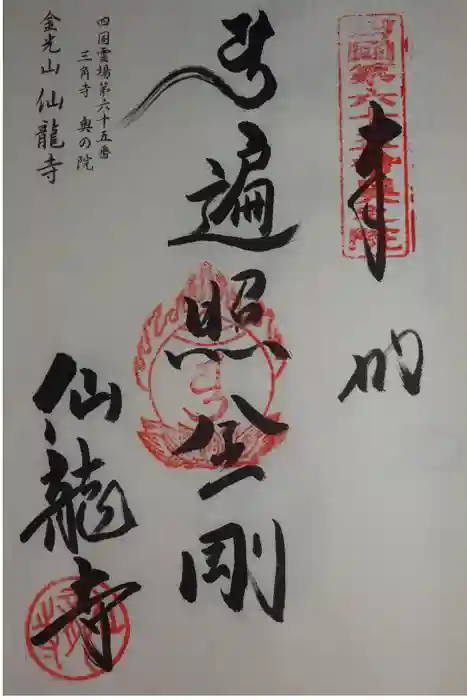 四國第六十五番奥之院
奉納
遍照金剛
四国靈場第六十五番
三角寺 奥の院
金光山 仙龍寺
仙龍寺